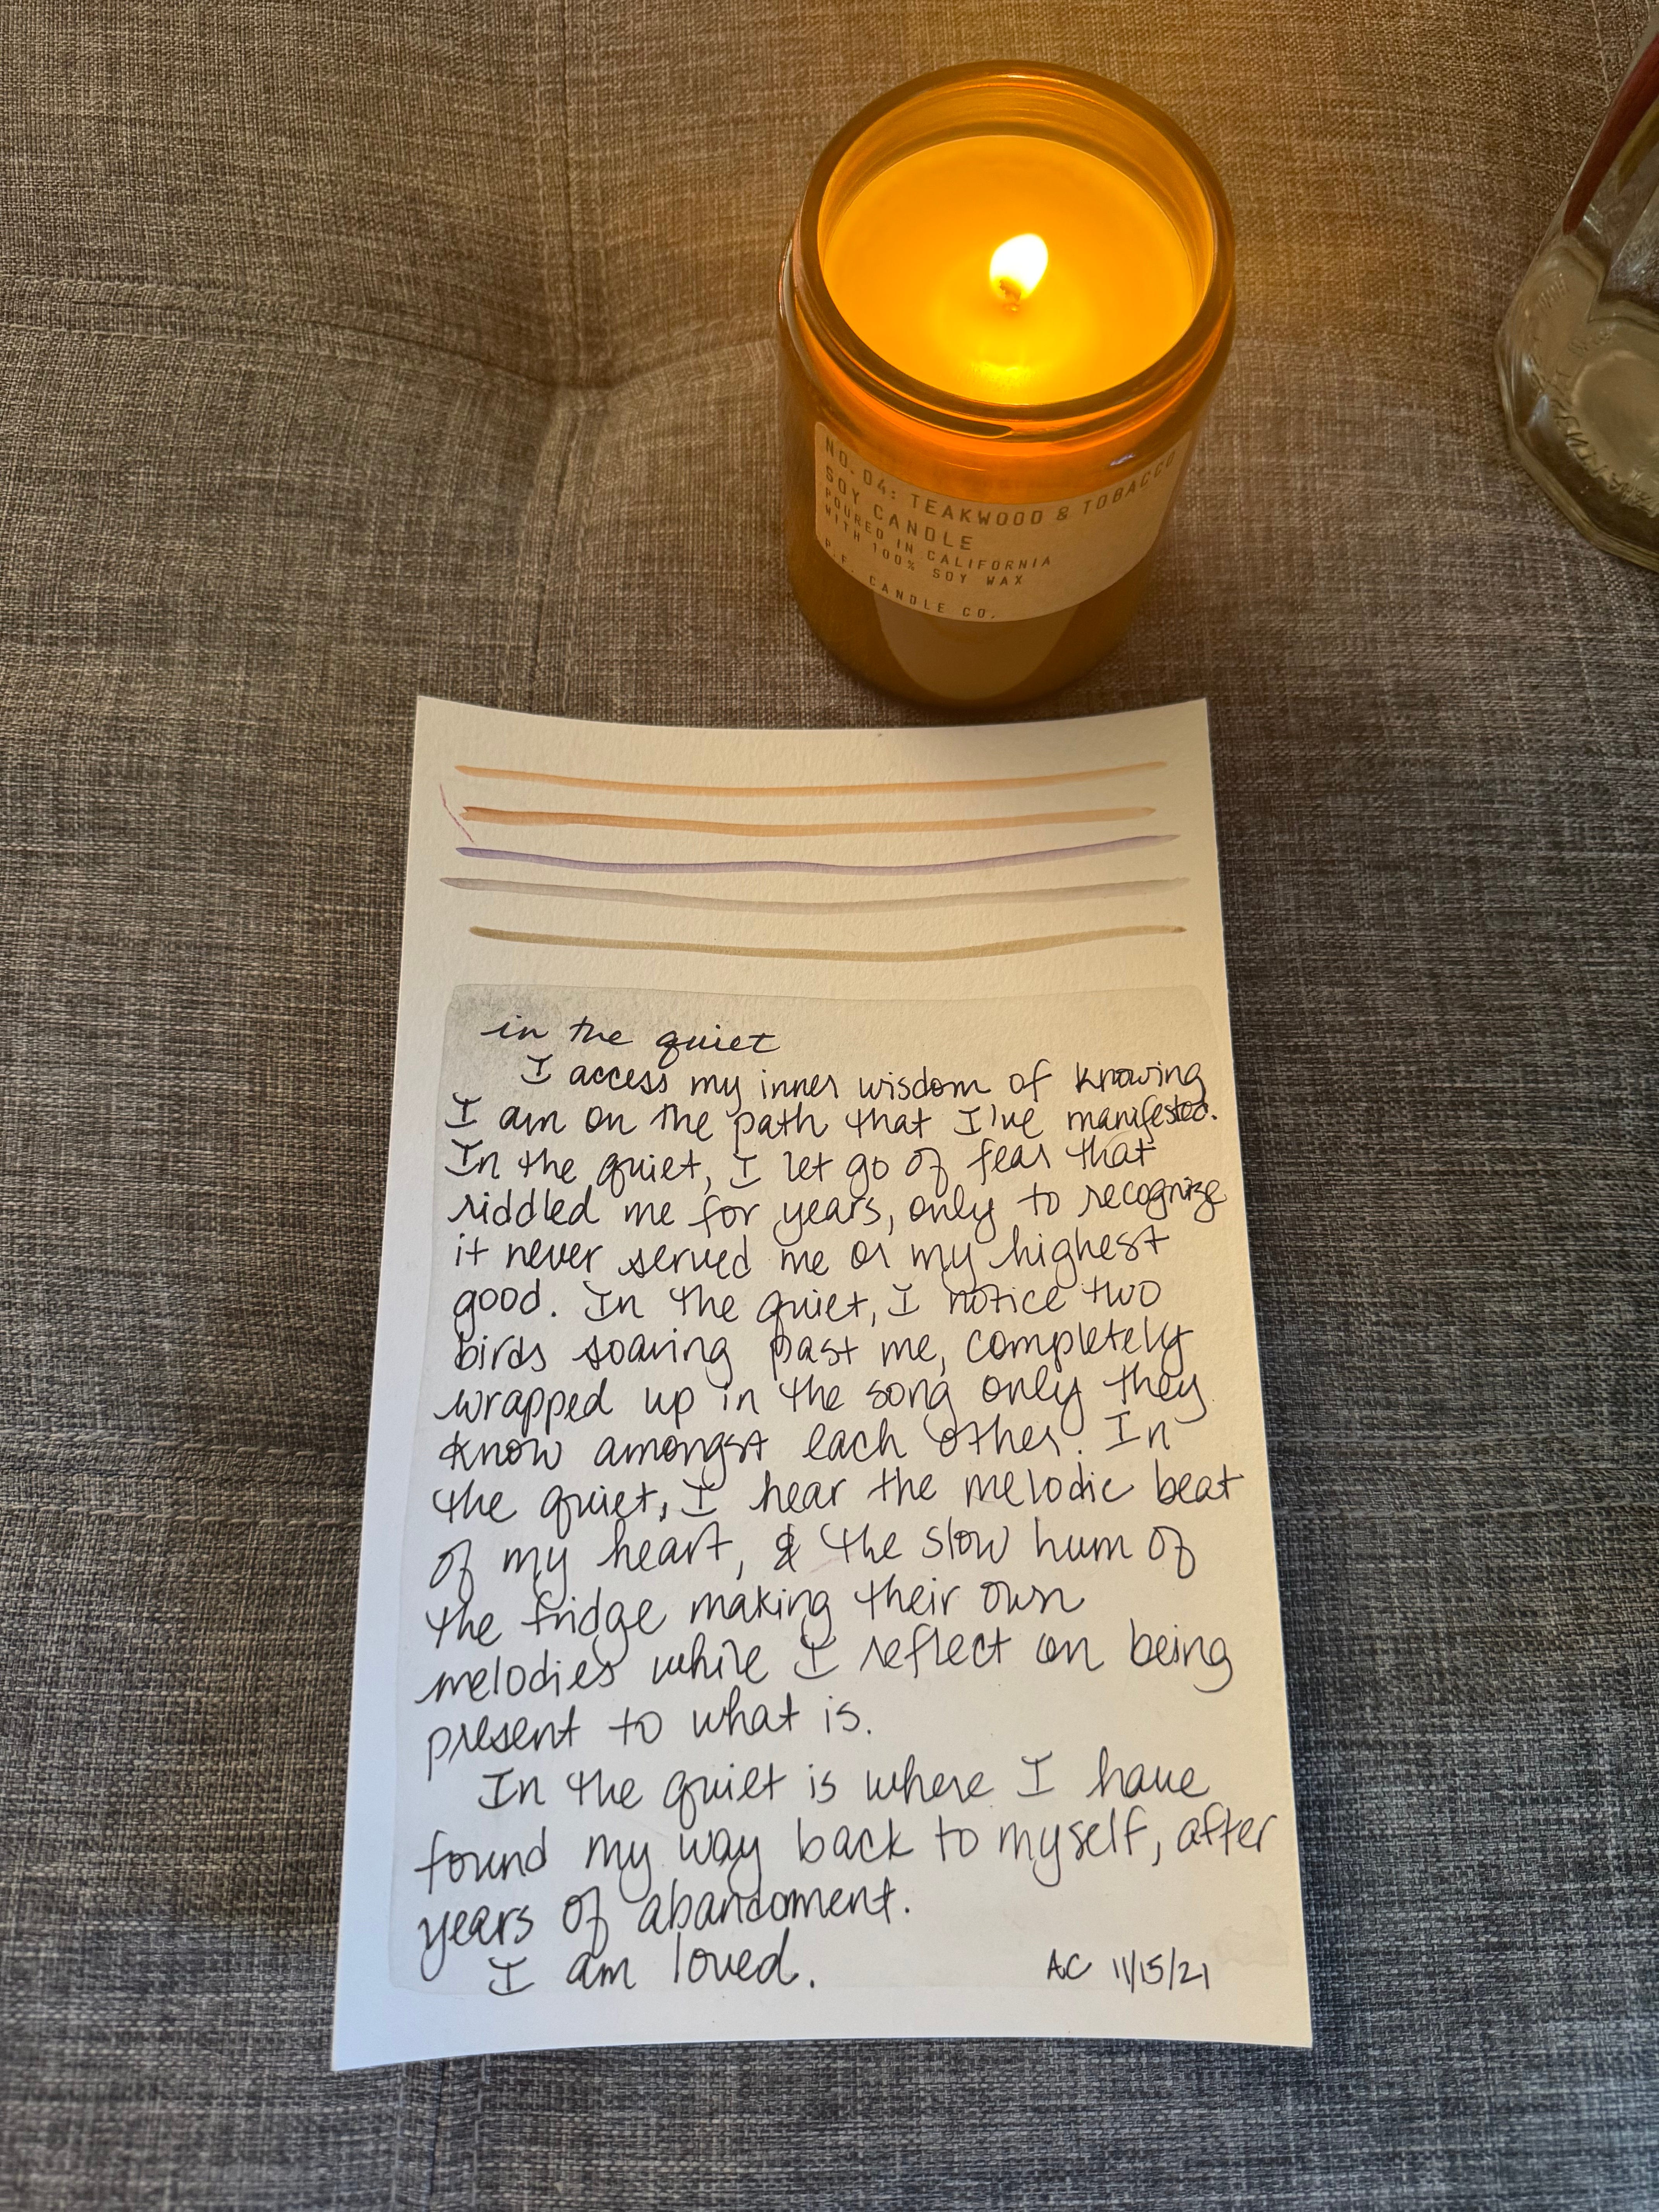 NO. 04: TEAKWOOD & TOBACCO
SOY CANDLE
POURED IN CALIFORNIA
WITH 100% SOY WAX
P.F. CANDLE CO.
in the quiet
I access my inner wisdom of knowing
I am on the path that I've manifested.
In the quiet, I let go of fear that
riddled me for years, only to recognize
it never served me or my highest
good. In the quiet, I notice two
birds soaring past me, completely
wrapped up in the song only they
know amongst each other. In
the quiet, I hear the melodic beat
of my heart, & the slow hum of
the fridge making their own
melodies while I reflect on being
present to what is.
In the quiet is where I have
found my way back to myself, after
years of abandoment.
I am loved.
AC 11/15/21